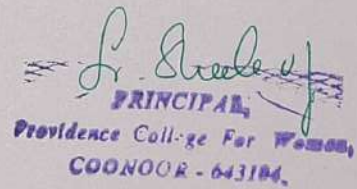 Sr. Sheela vj
PRINCIPAL,
Providence College For Women,
COONOOR - 643104.